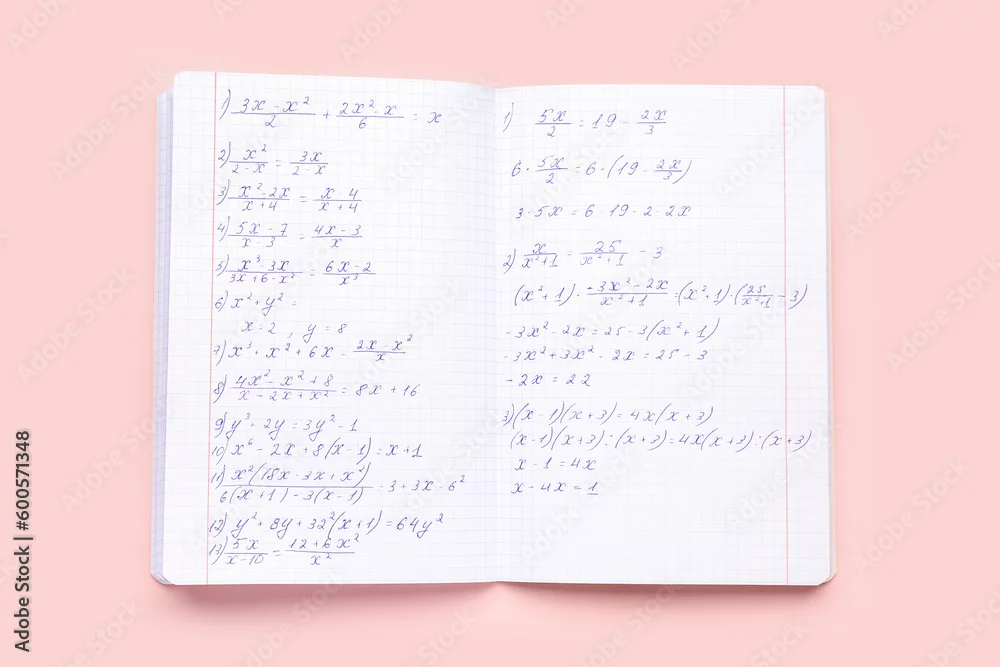 1) (3x - x²)/2 + (2x² - x)/6 = x
2) x²/(2 - x) = 3x/(2 - x)
3) (x² - 2x)/(x + 4) = (x - 4)/(x + 4)
4) (5x - 7)/(x - 3) = (4x - 3)/x
5) (x³ - 3x)/(3x + 6 - x²) = (6x - 2)/x³
6) x² + y² =
x = 2, y = 8
7) x³ + x² + 6x - (2x - x²)/x
8) (4x² - x² + 8)/(x - 2x + x²) = 8x + 16
9) y³ + 2y = 3y² - 1
10) x⁶ - 2x + 8(x - 1) = x + 1
11) x²(18x - 3x + x²)/(6(x + 1) - 3(x - 1)) = 3 + 3x - 6²
12) y² + 8y + 32²(x + 1) = 64y²
13) 5x/(x - 10) = (12 + 6x²)/x²
1) 5x/2 = 19 - 2x/3
6 · 5x/2 = 6 · (19 - 2x/3)
3 · 5x = 6 · 19 - 2 · 2x
2) x/(x² + 1) = 25/(x² + 1) - 3
(x² + 1) · (-3x² - 2x)/(x² + 1) = (x² + 1) · (25/(x² + 1) - 3)
-3x² - 2x = 25 - 3(x² + 1)
-3x² + 3x² - 2x = 25 - 3
-2x = 22
3) (x - 1)(x + 3) = 4x(x + 3)
(x - 1)(x + 3) : (x + 3) = 4x(x + 3) : (x + 3)
x - 1 = 4x
x - 4x = 1
Adobe Stock | #600571348